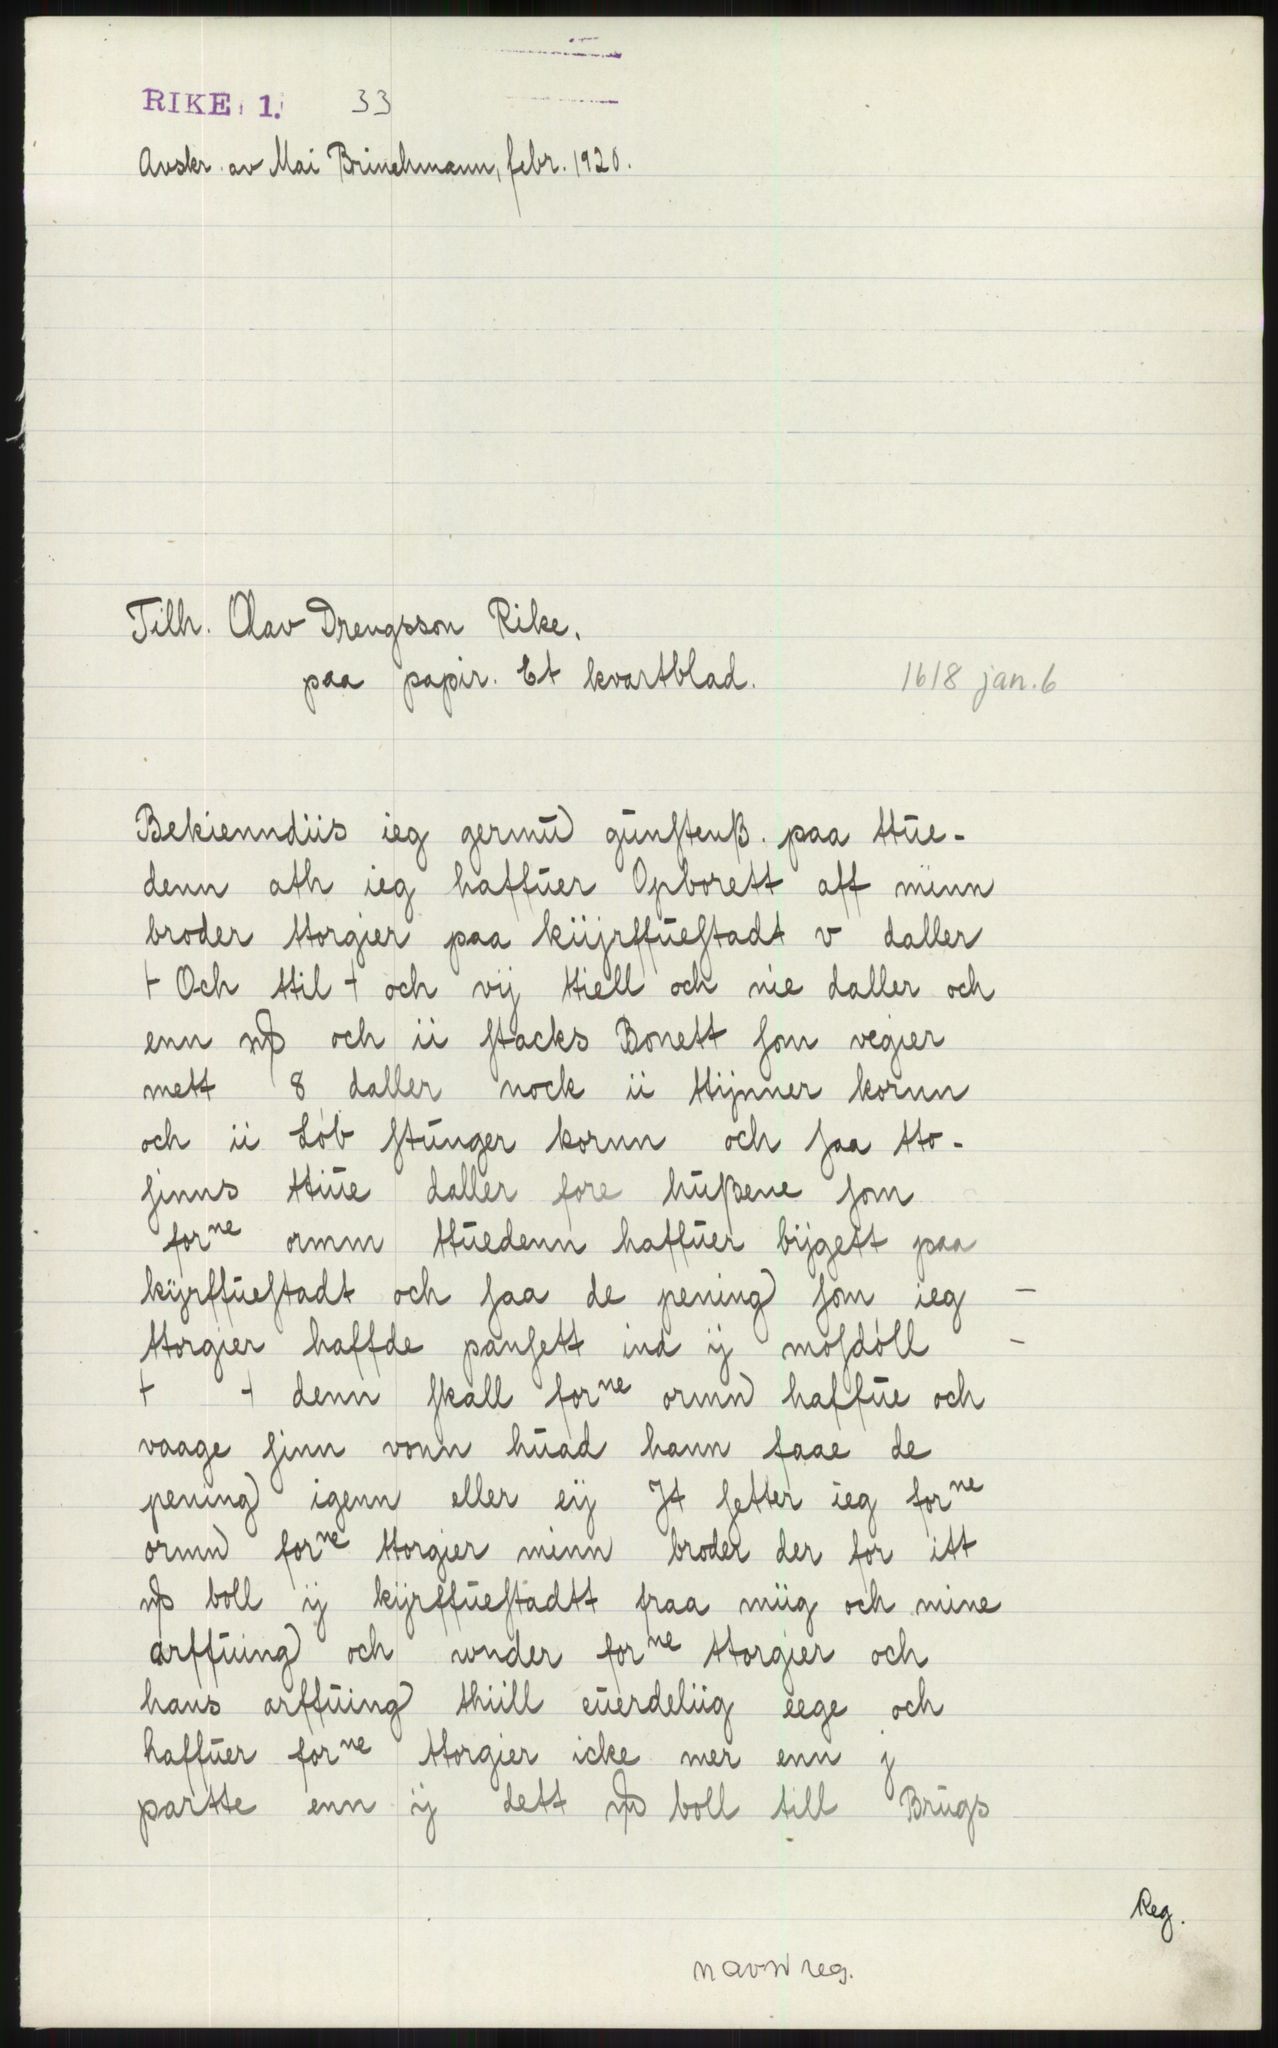 RIKE 1. 33
Avskr. av Mai Brinchmann, febr. 1920.
Tilh. Olav Drengsson Rike.
paa papir. Et kvartblad. 1618 jan. 6
Bekienndiis ieg germŭ) gŭnſtenß. paa ttŭe-
denn ath ieg haffŭer Opborett aff minn
broder ttorgier paa kiijrffŭeſtadt v daller
+ Och ttil + och vij ttiell och nie daller och
enn och ii ſtacks Bonett ſom vegier
mett 8 daller nock ii ttijnner kornn
och ii Løb ſtŭnger kornn och ſaa tto-
ſinns ttiŭe daller fore hŭßene ſom
forne ormm ttŭedenn haffŭer bijgett paa
kijrffŭeſtadt och ſaa de pening) ſom ieg –
ttorgier haffde panſett ind ij moſdøll –
+ + denn ſkall forne ormn) haffŭe och
vaage ſinn vonn hŭad hann faae de
pening) igenn eller eij Jt ſetter ieg forne
ormn) forne ttorgier minn broder der for itt
boll ij kijrffŭeſtadtt fraa miig och mine
arffŭing) och wnder forne ttorgier och
hans arffŭing) thiill eŭerdeliig eege och
haffŭer forne ttorgier icke mer enn j
partte enn ij dett boll till Brŭgs
Reg.
navn reg.